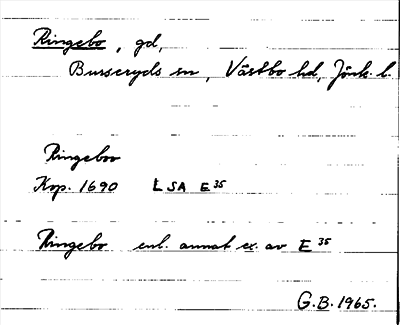 Ringebo, gd,
Burseryds sn, Västbo hd, Jönk. l.
Ringeboo
Kop. 1690 LSA E 35
Ringebo enl. annat ex. av E 35
G.B. 1965.